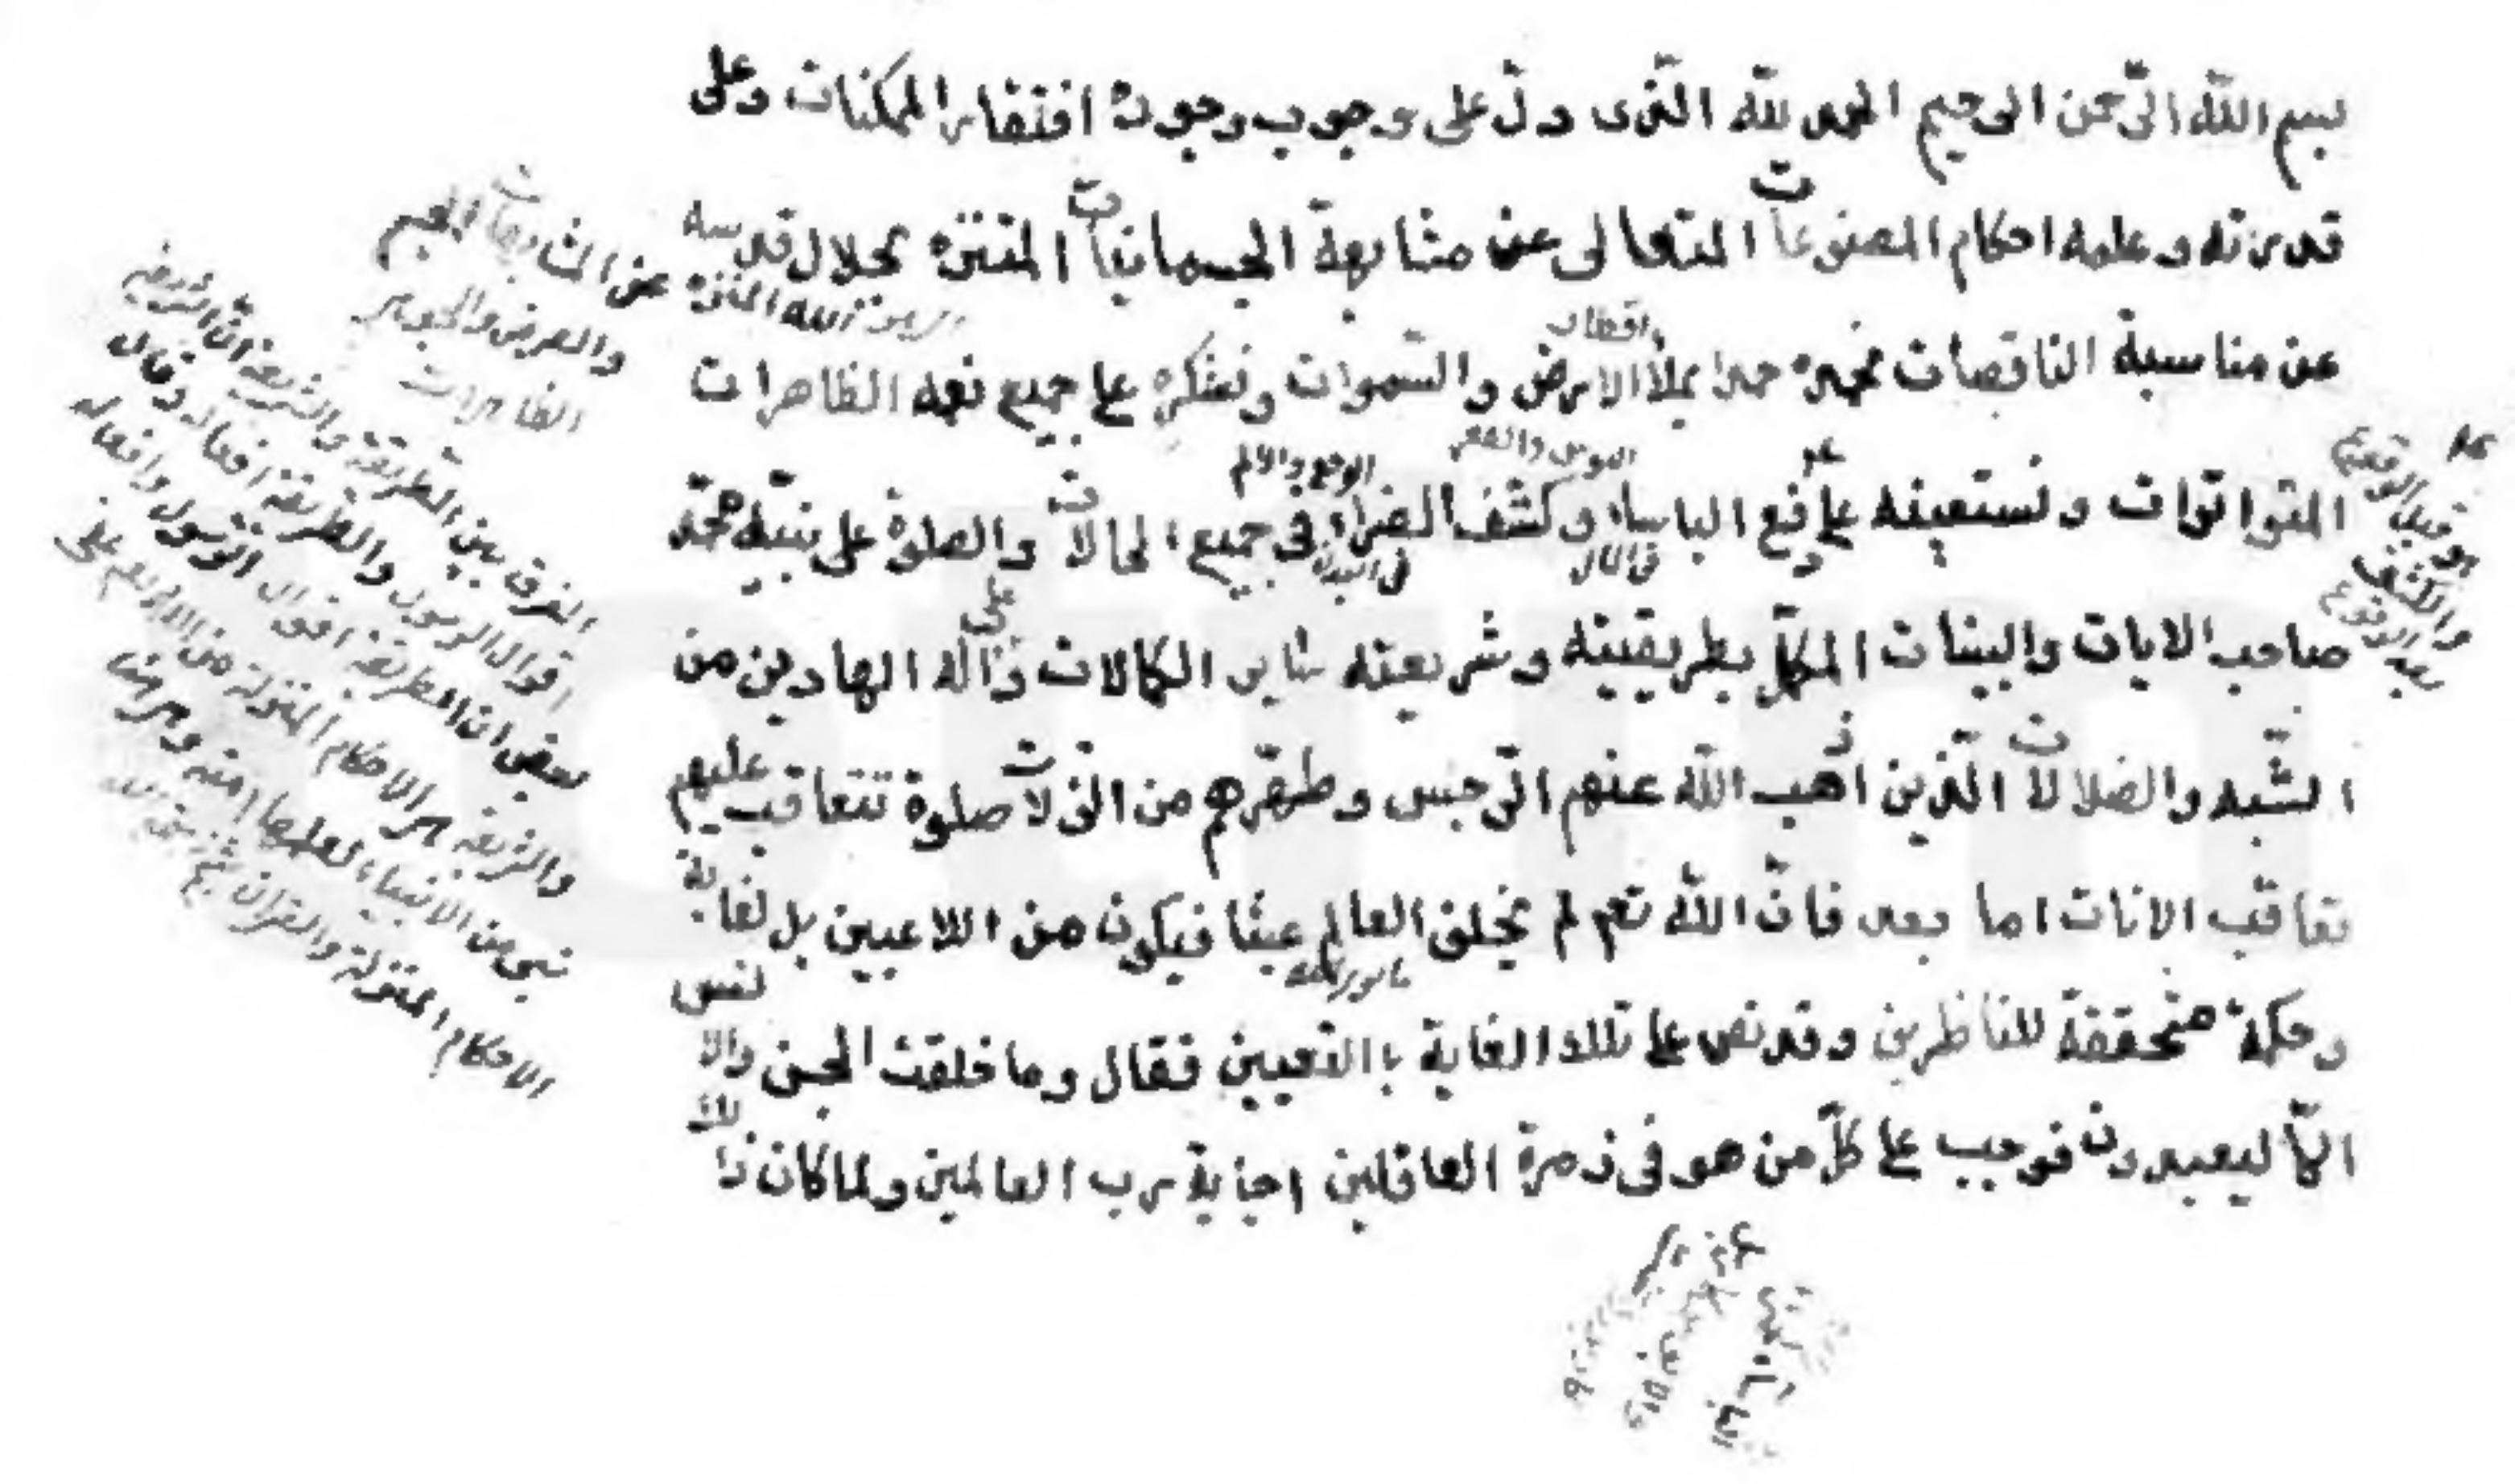 بسم الله الرّحمن الرحيم الحمد للّه الّذى دلّ على وجوب وجوده افتقار الممكنات وعلى
قدرته وعلمه احكام المصنوعات المتعالى عن مشابهة الجسمانيات المتنزه بجلال قدسه
عن مناسبة الناقصات نحمده حمدا يملأ اقطار الارض والسّموات ونشكره على جميع نعمه الظاهرات
المتواترات ونستعينه على دفع الباساء وكشف الضراء فى جميع الحالات والصلوة على نبيّه محمّد
صاحب الايات والبينات المكمّل بطريقيته وشريعته ساير الكمالات وعلى آله الهادين من
الشّبه والضلالات الّذين اذهب اللّه عنهم الرّجس وطهّرهم من الزّلات صلوة تتعاقب عليهم
تعاقب الانات اما بعد فانّ اللّه تعم لم يخلق العالم عبثا فيكون من اللاعبين بل لغاية
وحكمة متحققة للناظرين وقد نص على تلك الغاية بالتعيين فقال وما خلقت الجن والانس
الّا ليعبدون فوجب على كلّ من هو فى زمرة العاقلين اجابة رب العالمين ولما كان ذلك
المتنزه عن المشابهات الجسم
والعرض والجوهر
الظاهرات
الوجع والالم
فى المال
فى البدن
الفرق بين الطّريقة والشريعة انّ الشريعة
اقوال الرسول والطريقة افعاله وقال
بعض ان الطريقة اقوال الرّسول وافعاله
والشريعة هى الاحكام المنزلة من الله تعم على
نبى من الانبياء لعلمها امته
الاحكام المنزلة والقران